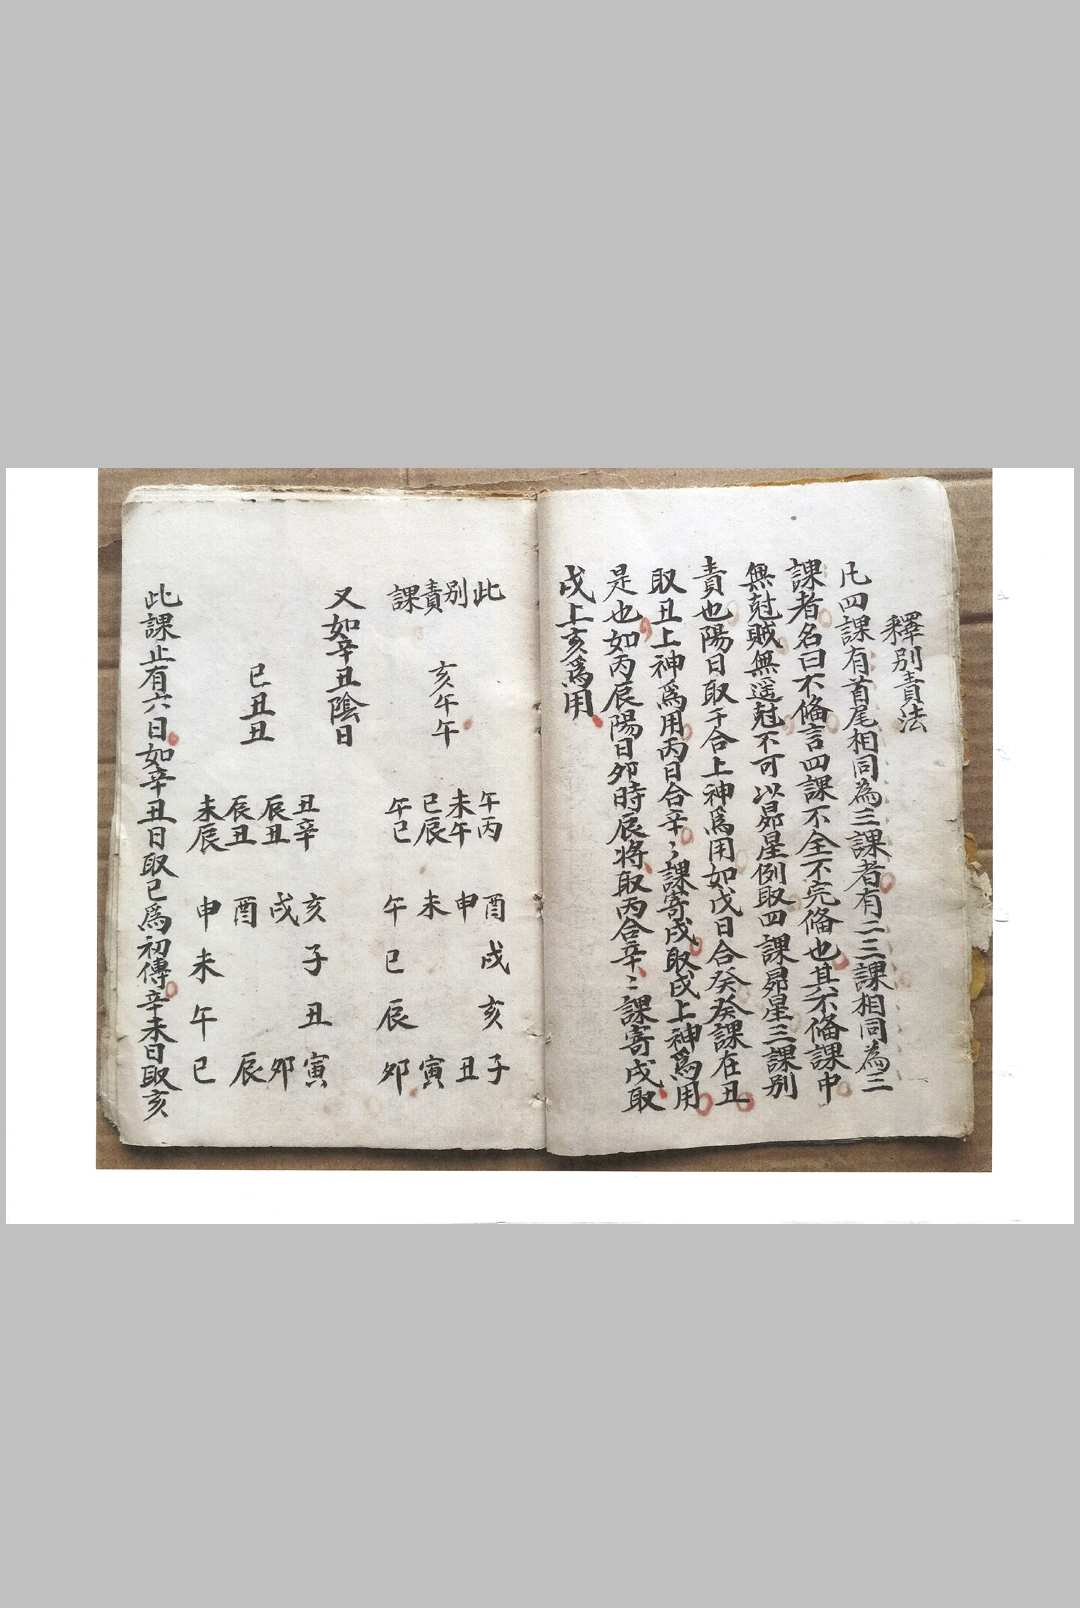 釋別責法
凢四課有首尾相同為三課者有二三課相同為三
課者名曰不偹言四課不全不完偹也其不偹課中
無尅賊無遥尅不可以昴星例取四課昴星三課別
責也陽日取干合上神爲用如戊日合癸癸課在丑
取丑上神爲用丙日合辛〻課寄戌取戌上神爲用
是也如丙辰陽日夘時辰将取丙合辛〻課寄戌取
戌上亥爲用
此別責課
亥午午
午丙 未午 巳辰 午巳
酉 戌 亥 子
申 丑
未 寅
午 巳 辰 夘
又如辛丑陰日
巳丑丑
丑辛 辰丑 辰丑 未辰
亥 子 丑 寅
戌 夘
酉 辰
申 未 午 巳
此課止有六日如辛丑日取巳爲初傳辛未日取亥